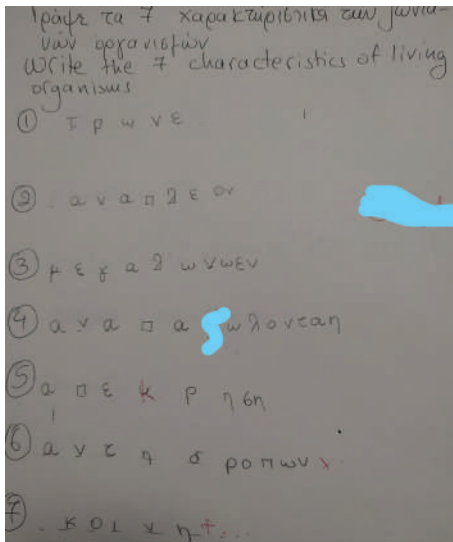 Γράψε τα 7 χαρακτηριστικά των ζωντα-
νών οργανισμών
Write the 7 characteristics of living
organisms
① τ ρ ω ν ε
② . α ν α π λ ε ον
③ μ ε γ α λ ω ν ω ε ν
④ α ν α π α ω λ ο ν τ α η
⑤ α π ε κ ρ η ση
⑥ α ν τ η δ ρ ο π ω ν
⑦ . κ ο ι ν η